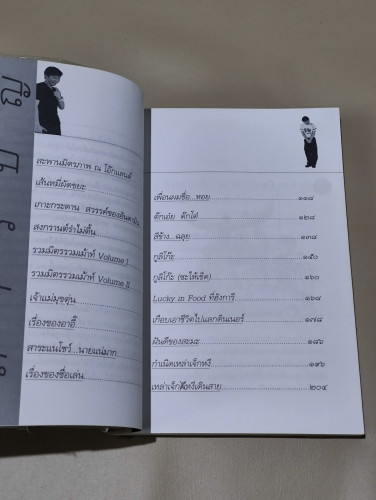 สะพานมิตรภาพ ณ โอ๊กแลนด์
เส้นหมี่ผัดขยะ
เกาะกระดาน สวรรค์ของอันดามัน
สงกรานต์ร่ำไม่ตื้น
รวมมิตรรวมเม้าท์ Volume I
รวมมิตรรวมเม้าท์ Volume II
เจ้าแม่มุขตุ่น
เรื่องของอาอี๊
สาระแนโชว์...นายแน่มาก
เรื่องของชื่อเล่น
เพื่อนผมชื่อ...หอย ๑๑๘
ตักเอ๋ย ตักไต่ ๑๒๘
สีข้าง...ฉลุย ๑๓๘
กูลิโก๊ะ ๑๕๐
กูลิโก๊ะ (ซะให้เข็ด) ๑๖๐
Lucky in Food ที่ฮังการี ๑๖๘
เกือบเอาชีวิตไปแลกดินเนอร์ ๑๗๘
ฝันดีของละมะ ๑๘๖
กำเนิดเหล่าเจ็กหงี ๑๙๖
เหล่าเจ็กหงีเดินสาย ๒๐๔